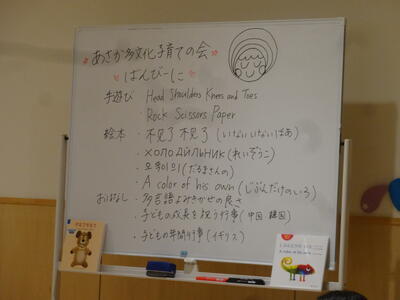 あさか多文化子育ての会
ばんびーに
手遊び Head Shoulders Knees and Toes
・Rock Scissors Paper
絵本 ・不见了不见了 (いないいないばあ)
・ХОЛОДИЛЬНИК (れいぞうこ)
(だるまさんの)
・A color of his own (じぶんだけのいろ)
おはなし ・多言語よみきかせの良さ
・子どもの成長を祝う行事 (中国 韓国)
・子どもの年間行事 (イギリス)
じぶんだけのいろ
A color of his own